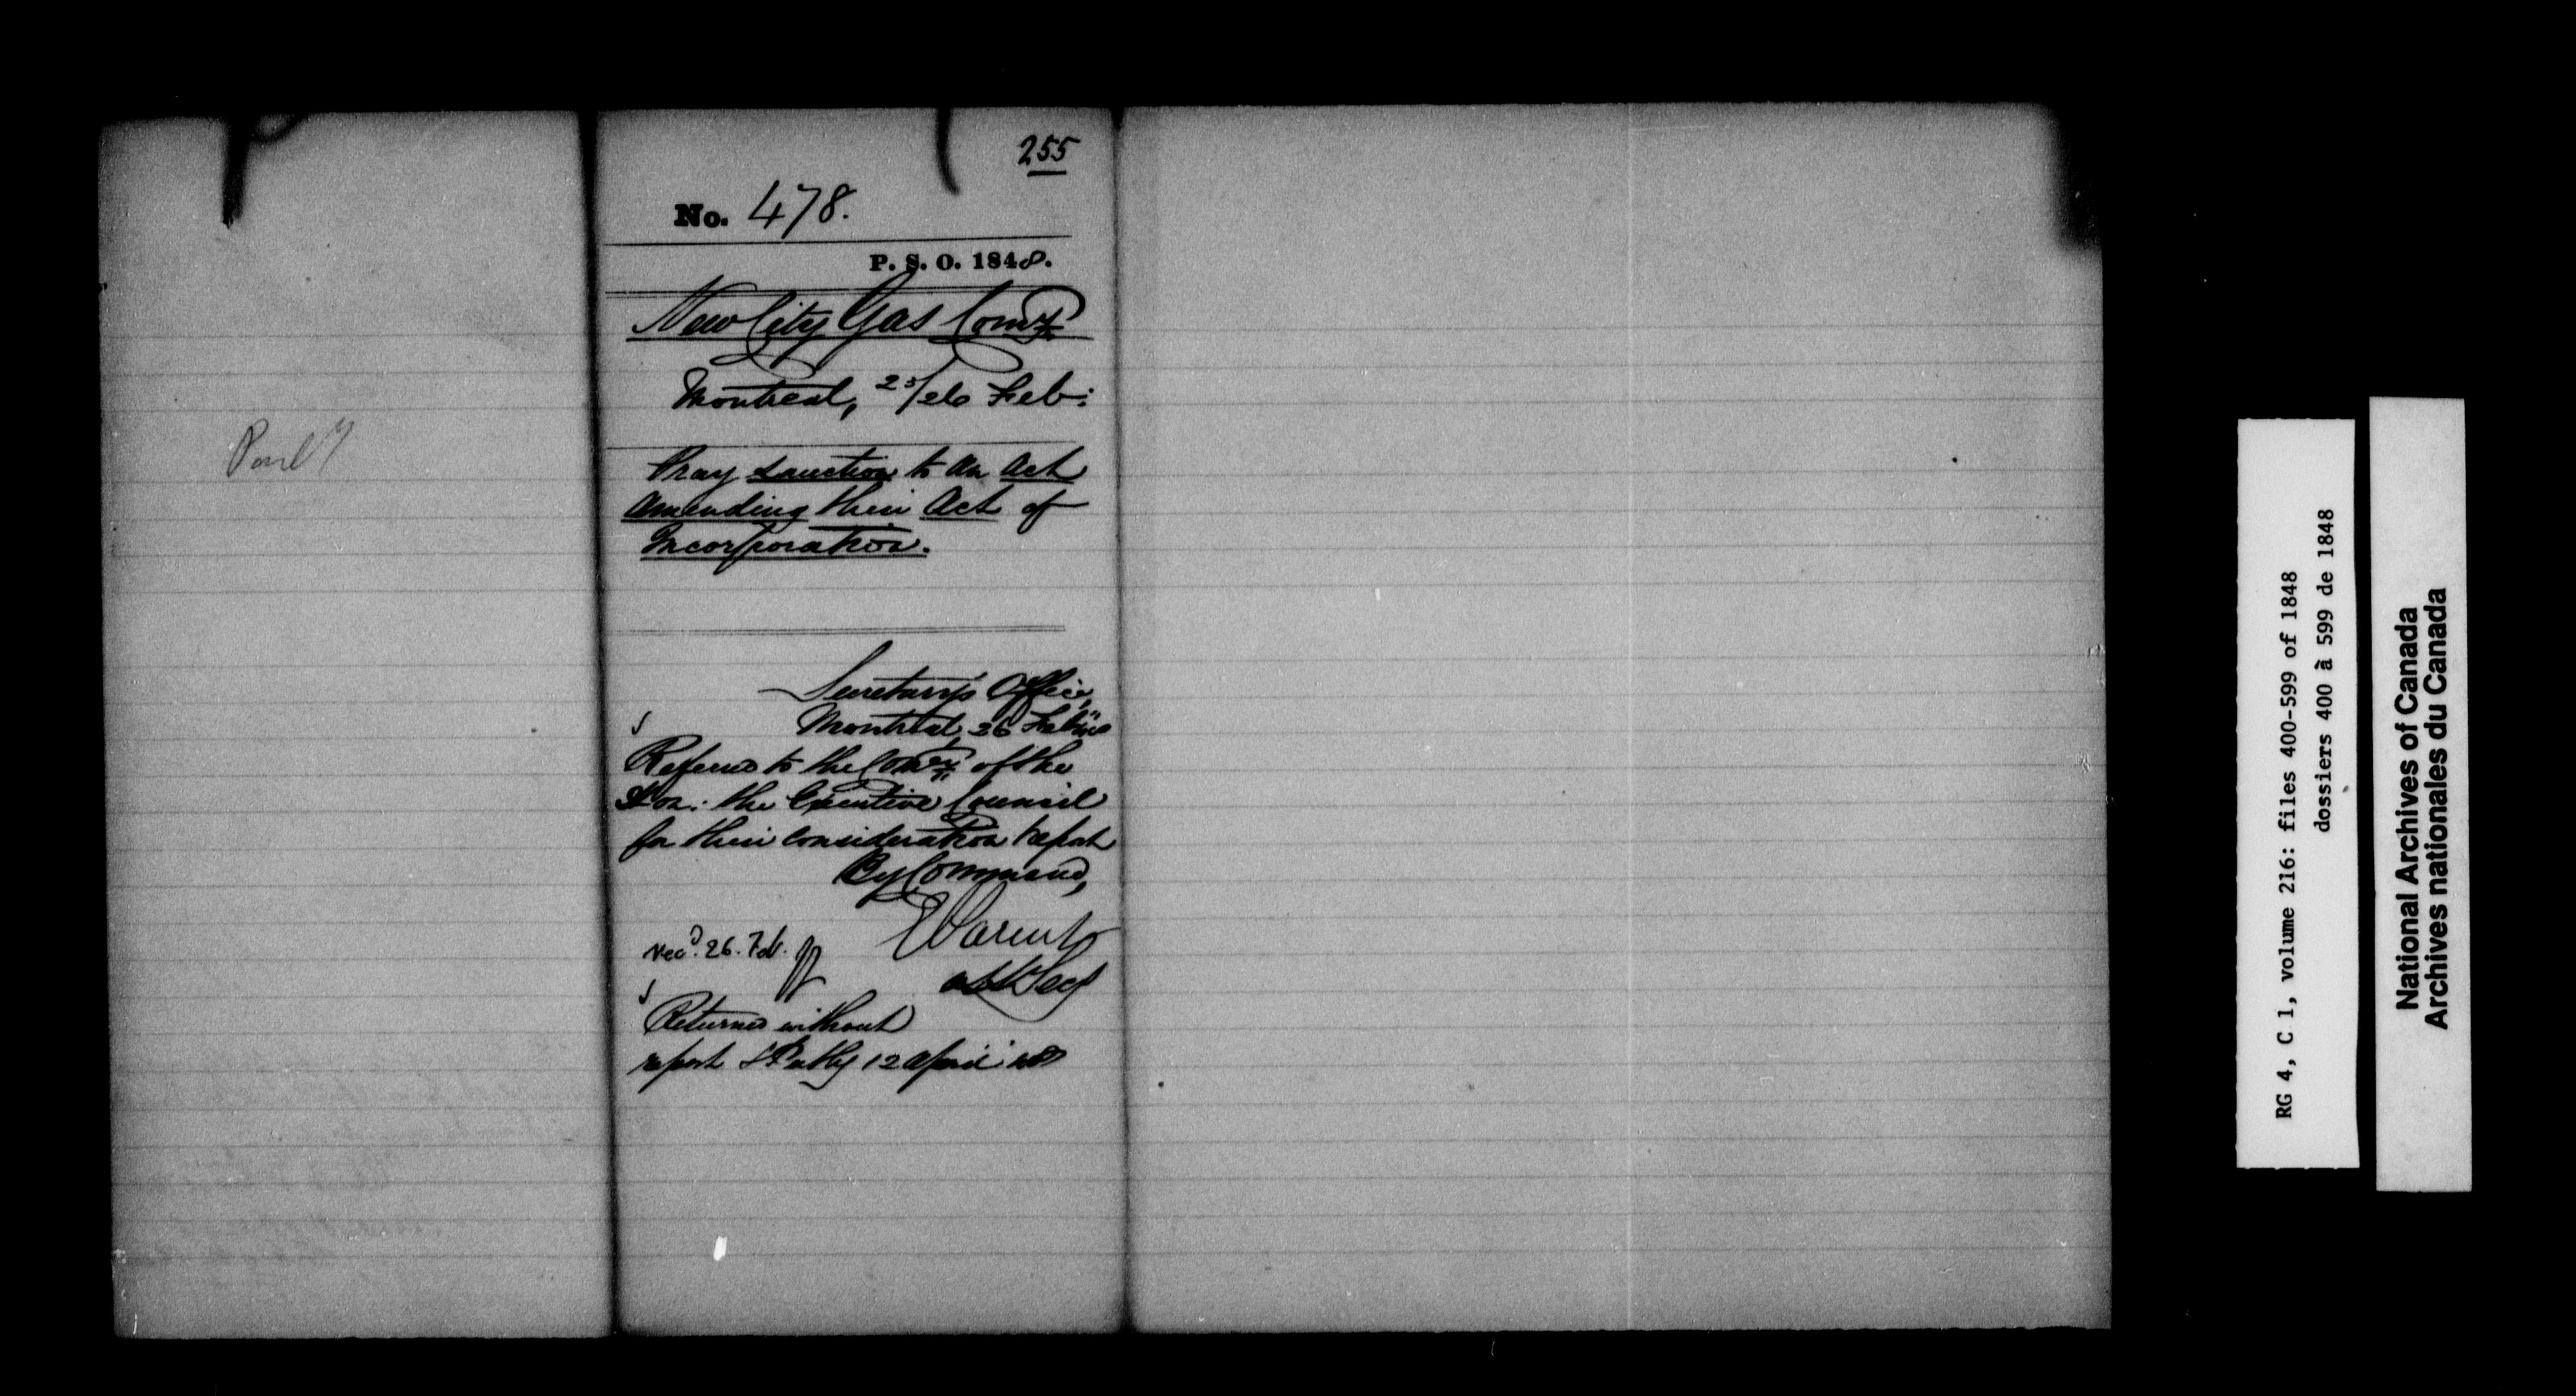 255
No. 478.
P. S. O. 1848.
New City Gas Compy
Montreal, 25/26 Feb:
Pray sanction to an Act
amending their Act of
Incorporation.
Secretary's Office,
Montreal, 26 Feb:
Referred to the Comee of the
Hon: the Executive Council
for their consideration & report
By Command,
E Parent
asst Secy
recd. 26. Feb.
Returned without
report 12 April
RG 4, C 1, volume 216: files 400-599 of 1848
dossiers 400 à 599 de 1848
National Archives of Canada
Archives nationales du Canada